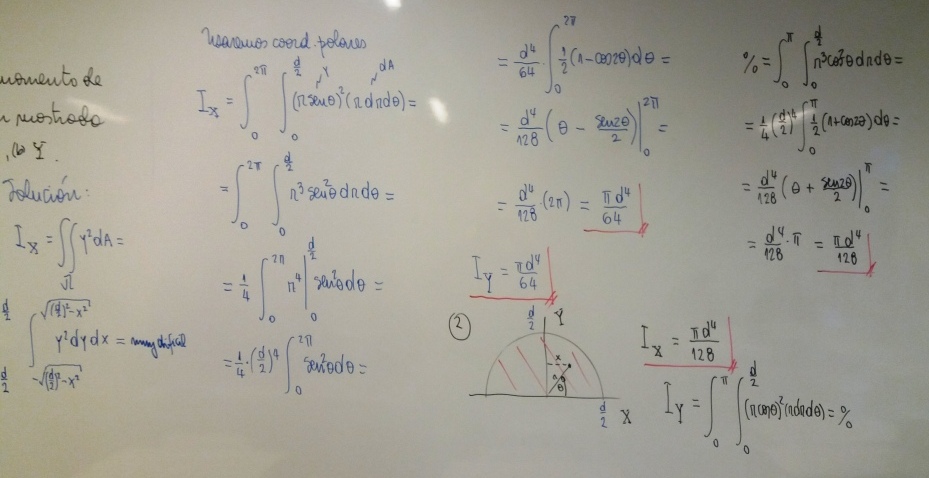 momento de
mostrada
Y.
Solución:
I_x = ∬_Ω y² dA =
d/2 ∫_{-√((d/2)²-x²)}^{√((d/2)²-x²)} y² dy dx = muy difícil
d/2
Usaremos coord. polares
y dA
I_x = ∫_0^{2π} ∫_0^{d/2} (r senθ)² (r dr dθ) =
= ∫_0^{2π} ∫_0^{d/2} r³ sen²θ dr dθ =
= 1/4 ∫_0^{2π} r⁴ |_0^{d/2} sen²θ dθ =
= 1/4 · (d/2)⁴ ∫_0^{2π} sen²θ dθ =
= d⁴/64 · ∫_0^{2π} 1/2 (1 - cos2θ) dθ =
= d⁴/128 (θ - sen2θ/2) |_0^{2π} =
= d⁴/128 · (2π) = πd⁴/64
I_Y = πd⁴/64
2
d/2 Y
x
r
θ
d/2 X
I_x = πd⁴/128
I_Y = ∫_0^π ∫_0^{d/2} (r cosθ)² (r dr dθ) = %
% = ∫_0^π ∫_0^{d/2} r³ cos²θ dr dθ =
= 1/4 (d/2)⁴ ∫_0^π 1/2 (1 + cos2θ) dθ =
= d⁴/128 (θ + sen2θ/2) |_0^π =
= d⁴/128 · π = πd⁴/128